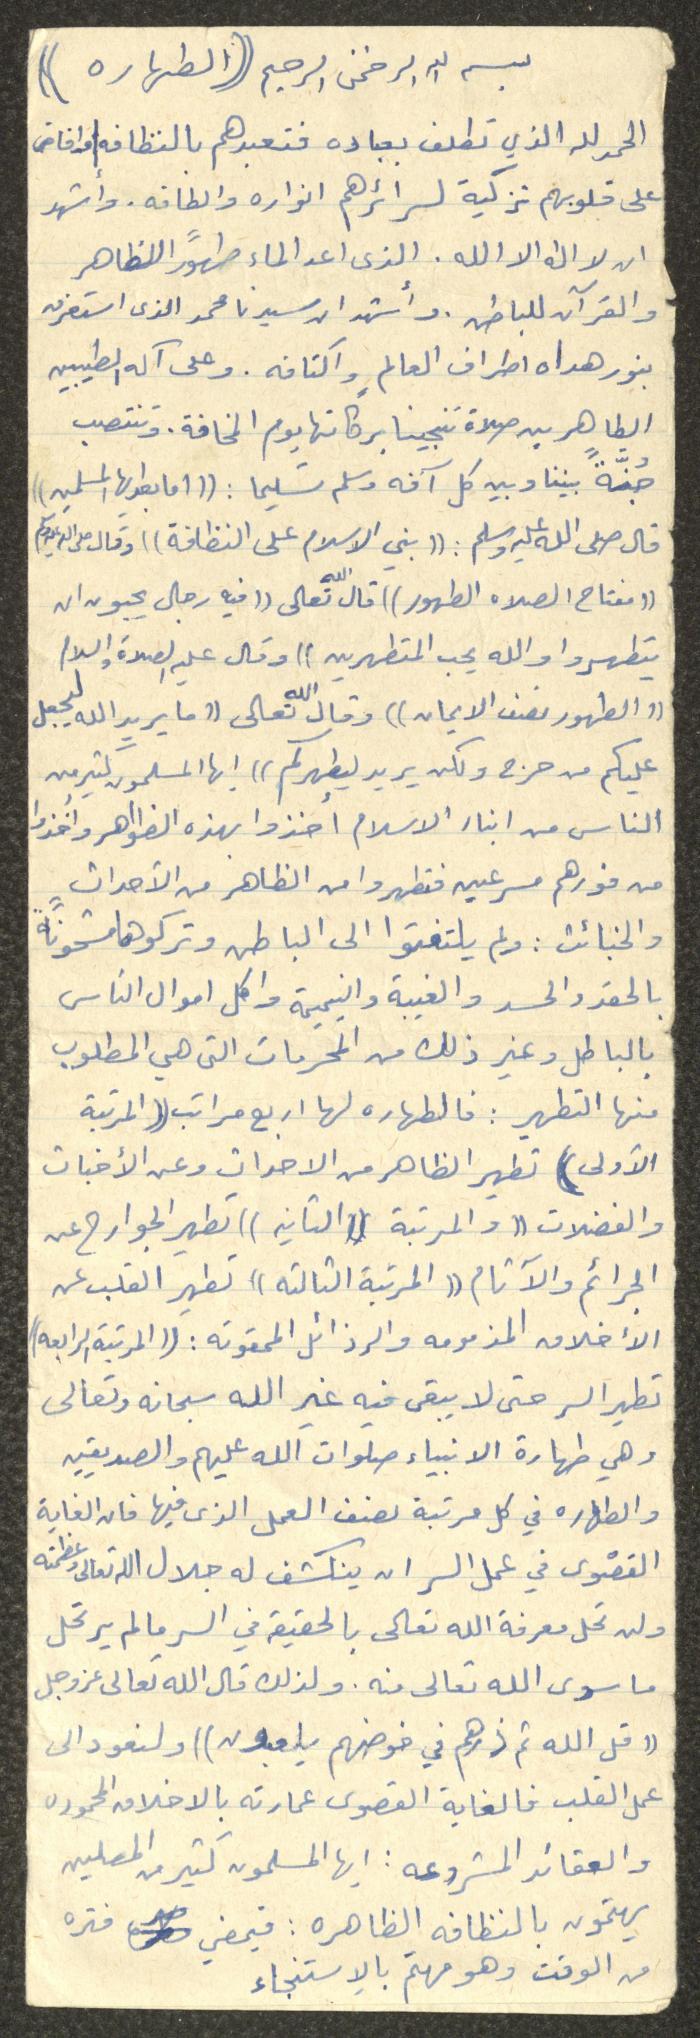 بسم الله الرحمن الرحيم ((الطهاره))
الحمد لله الذي تطلف بعباده فتعبدهم بالنظافه وافاض
على قلوبهم تزكية لسرائرهم انواره والطافه . وأشهد
ان لا اله الا الله . الذى اعد الماء طهوراً للظاهر
والقرآن للباطن . وأشهد ان سيدنا محمد الذى استغرق
بنور هداه اطراف العالم واكنافه . وعلى آله الطيبين
الطاهرين صلاة تنجينا بركاتها يوم المخافة . وتنتصب
جُنَّةً بيننا وبين كل آفه وسلم تسليما : ((اما بعد ايها المسلمين))
قال صلى الله عليه وسلم : ((بني الاسلام على النظافة)) وقال صلى الله عليه وسلم
((مفتاح الصلاه الطهور)) قال الله تعالى ((فيه رجال يحبون ان
يتطهروا والله يحب المتطهرين)) وقال عليه الصلاة والسلام
((الطهور نصف الايمان)) وقال الله تعالى ((ما يريد الله ليجعل
عليكم من حرج ولكن يريد ليطهركم)) ايها المسلمون كثير من
الناس من ابناء الاسلام أخذوا بهذه الظواهر وأخذوا
من فورهم مسرعين فتطهروا من الظاهر من الأحداث
والخبائث : ولم يلتفتوا الى الباطن وتركوها مشحونةً
بالحقد والحسد والغيبة والنميمة واكل اموال الناس
بالباطل وغير ذلك من المحرمات التى هي المطلوب
منها التطهير : فالطهاره لها اربع مراتب ((المرتبة
الأولى)) تطهير الظاهر من الاحداث وعن الأخباث
والفضلات ((والمرتبة الثانيه)) تطهير الجوارح عن
الجرائم والآثام ((المرتبة الثالثه)) تطهير القلب عن
الأخلاق المذمومه والرذائل الممقوته : ((المرتبة الرابعه))
تطهير السر حتى لا يبقى فيه غير الله سبحانه وتعالى
وهي طهارة الانبياء صلوات الله عليهم والصديقين
والطهاره في كل مرتبة نصف العمل الذى فيها فان الغاية
القصوى في عمل السر ان ينكشف له جلال الله تعالى وعظمته
ولن تحل معرفة الله تعالى بالحقيقة في السر ما لم يرتحل
ما سوى الله تعالى منه . ولذلك قال الله تعالى عز وجل
((قل الله ثم ذرهم في خوضهم يلعبون)) ولنعود الى
عمل القلب فالغاية القصوى عمارته بالاخلاق المحموده
والعقائد المشروعه : ايها المسلمون كثير من المصلين
يهتمون بالنظافه الظاهره : فيمضي فتره
من الوقت وهو مهتم بالإستنجاء